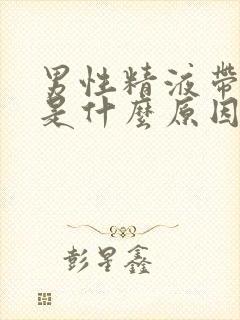 男性精液帶
是什麼原因
彭星鑫